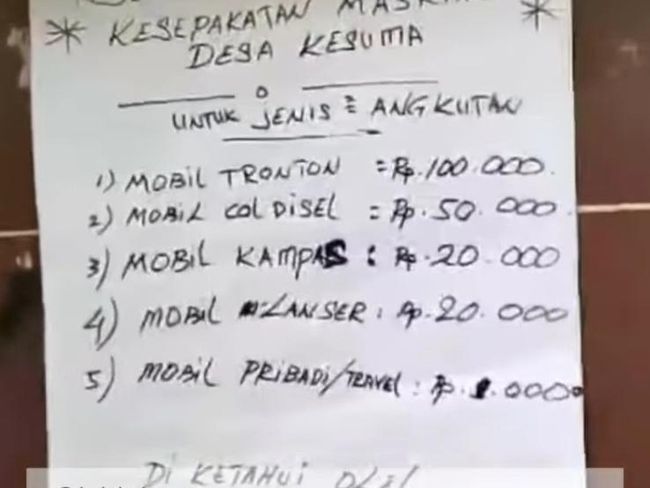 * KESEPAKATAN *
DESA KESUMA
UNTUK JENIS = ANGKUTAN
1) MOBIL TRONTON = Rp. 100.000.
2) MOBIL COLDISEL = Rp. 50.000.
3) MOBIL KAMPAS : Rp. 20.000
4) MOBIL LANSER : Rp. 20.000
5) MOBIL PRIBADI/TRAVEL : Rp.
DI KETAHUI